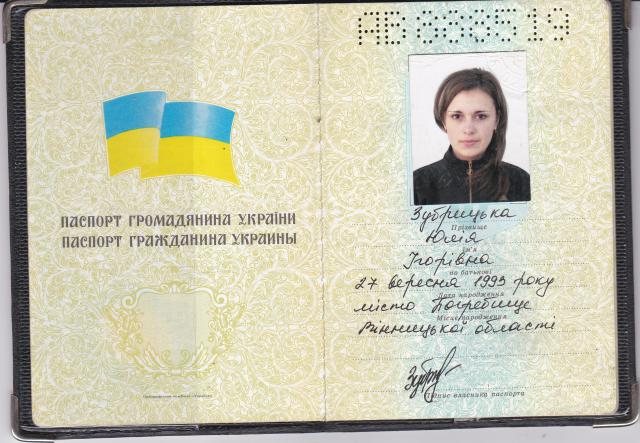 ПАСПОРТ ГРОМАДЯНИНА УКРАЇНИ
ПАСПОРТ ГРАЖДАНИНА УКРАИНЫ
Зубрицька
Прізвище
Юлія
Ім'я
Ігорівна
по батькові
27 вересня 1993 року
Дата народження
місто Погребище
Місце народження
Вінницької області
Підпис власника паспорта